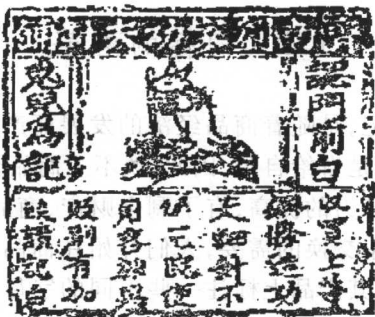 濟南劉家功夫針鋪
認門前白
兔兒為記
收買上等
鋼條造功
夫細針不
悞宅院使
用客轉為
販別有加
饒請記白